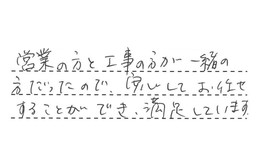 営業の方と工事の方が一緒の
方だったので、安心してお任せ
することができ、満足しています